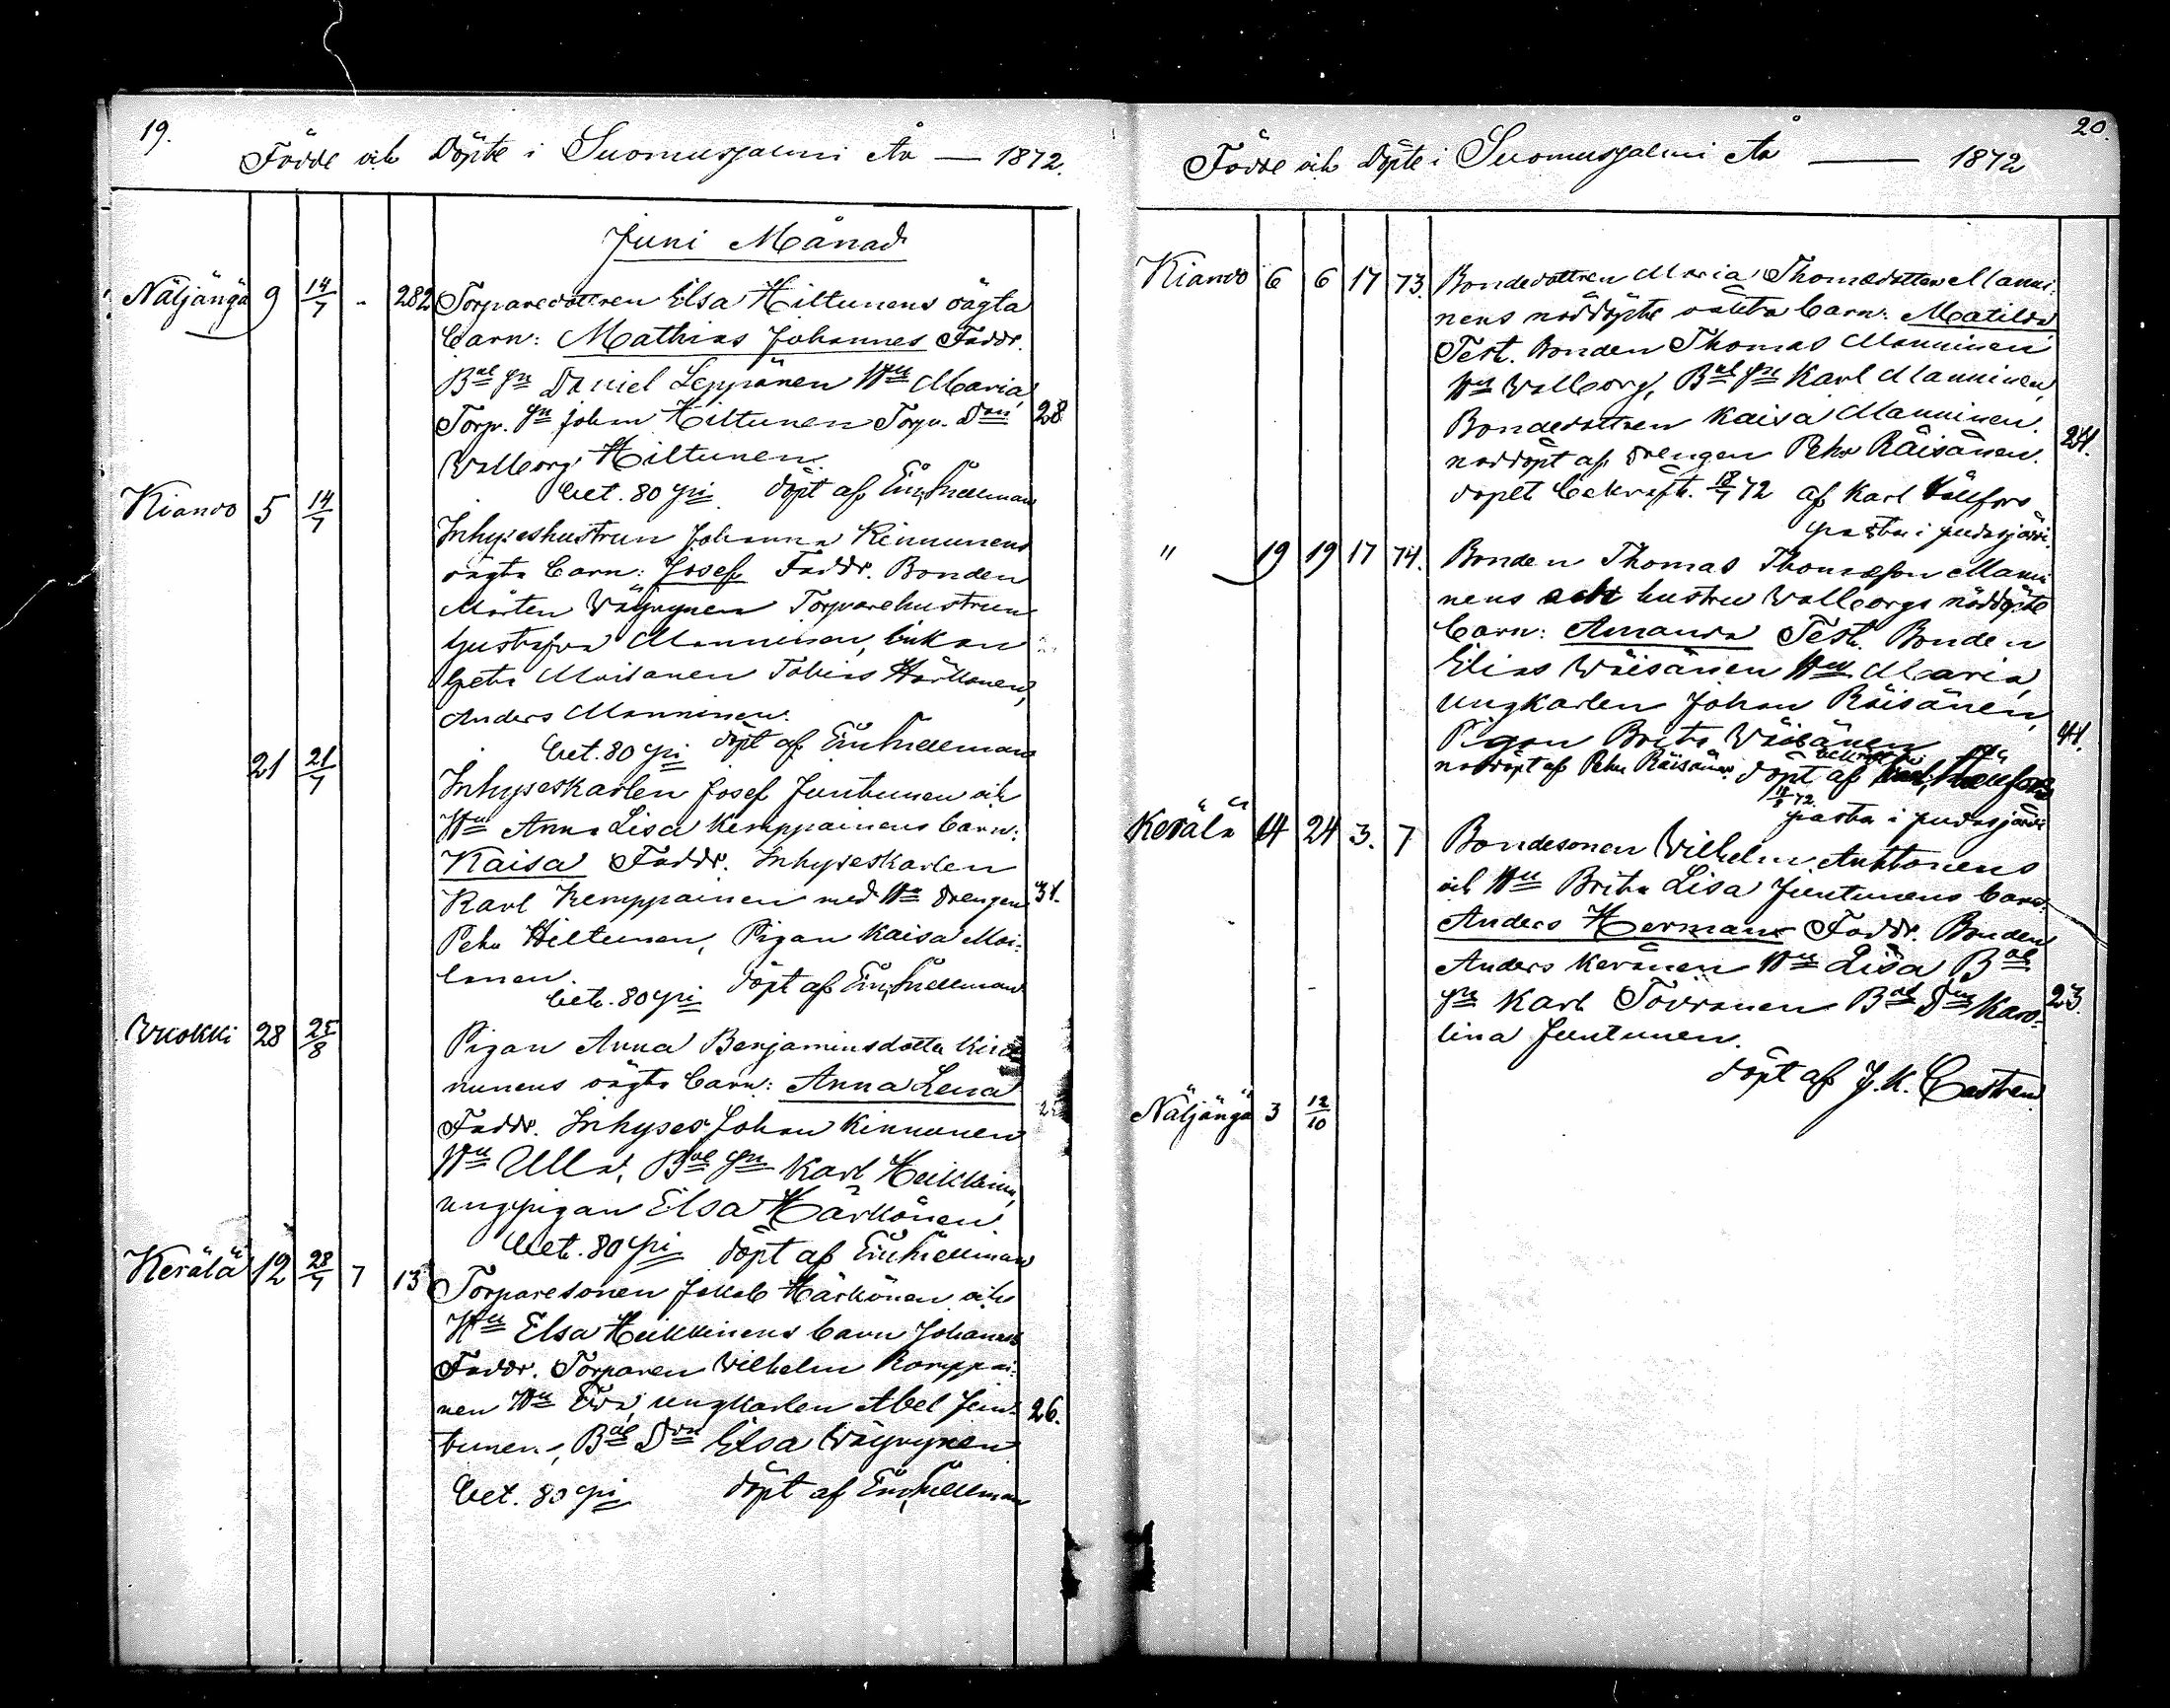 19.
Födde och Döpte i Suomusjalmi År — 1872.
Juni Månad
Näljängä 9 14/7 - 282 Torparedottren Elsa Hiltunens oägta
barn: Mathias Johannes Faddr.
Bde Sn Daniel Leppänen Hu Maria,
Torp. Sn Johan Hiltunen Torp. Don 28
Walborg Hiltunen.
bet. 80 pi döpt af Snellman
Kiando 5 14/7
Inhyseshustrun Johanna Kinnunens
oägta barn: Josef Faddr. Bonden
Mårten Wäyrynen Torparehustrun
Gustafva Manninen, Enkan
Greta Moilanen Tobias Härkönen,
Anders Manninen.
bet. 80 pi döpt af Snellman
21 21/7
Inhyseskarlen Josef Juntunen och
Hu Anna Lisa Kemppainens barn:
Kaisa Faddr. Inhyseskarlen
Karl Kemppainen med Hu drengen 31.
Pehr Hiltunen, Pigan Kaisa Moi-
lanen.
bet. 80 pi döpt af Snellman
Wuokki 28 25/8
Pigan Anna Benjaminsdotter Kin
nunens oägta barn: Anna Lena
Faddr. Inhyses Johan Kinnunen
Hu Ulla, Bde Sn Karl Heikkinen,
ungpigan Elsa Härkönen.
bet. 80 pi döpt af Snellman
Kerälä 12 28/7 7 13 Torparesonen Jakob Härkönen och
Hu Elsa Heikkinens barn Johannes
Faddr. Torparen Wilhelm Romppai-
nen Hu Eva, ungkarlen Abel Jun- 26.
tunen, Bde Don Elsa Wäyrynen
bet. 80 pi döpt af Snellman
20.
Födde och Döpte i Suomusjalmi År — 1872
Kiando 6 6 17 73. Bondedottren Maria Thomædotter Manni-
nens nöddöpte oäkta barn: Matilda
Test. Bonden Thomas Manninen
Hu Walborg, Bde Sn Karl Manninen,
Bondedottren Kaisa Manninen.
nöddöpt af drengen Pehr Räisänen. 24.
dopet bekräft. 18/7 72 af Karl
pastor i pudasjärvi.
" 19 19 17 74. Bonden Thomas Thomæson Manni
nens och hustru Walborgs nöddöpte
barn: Amanda Test. Bonden
Elias Wäisänen Hu Maria,
ungkarlen Johan Räisänen,
Pigan Brita Wäisänen 44.
nöddöpt af Pehr Räisänen döpt af
72.
pastor i pudasjärvi
Kerälä 14 24 3. 7 Bondesonen Wilhelm Anttonens
och Hu Brita Lisa Juntunens barn:
Anders Herman Faddr. Bonden
Anders Keränen Hu Lisa Bde
Sn Karl Tövränen Bde Don Karo- 23.
lina Juntunen.
döpt af J. K. Castren
Näljängä 3 12/10